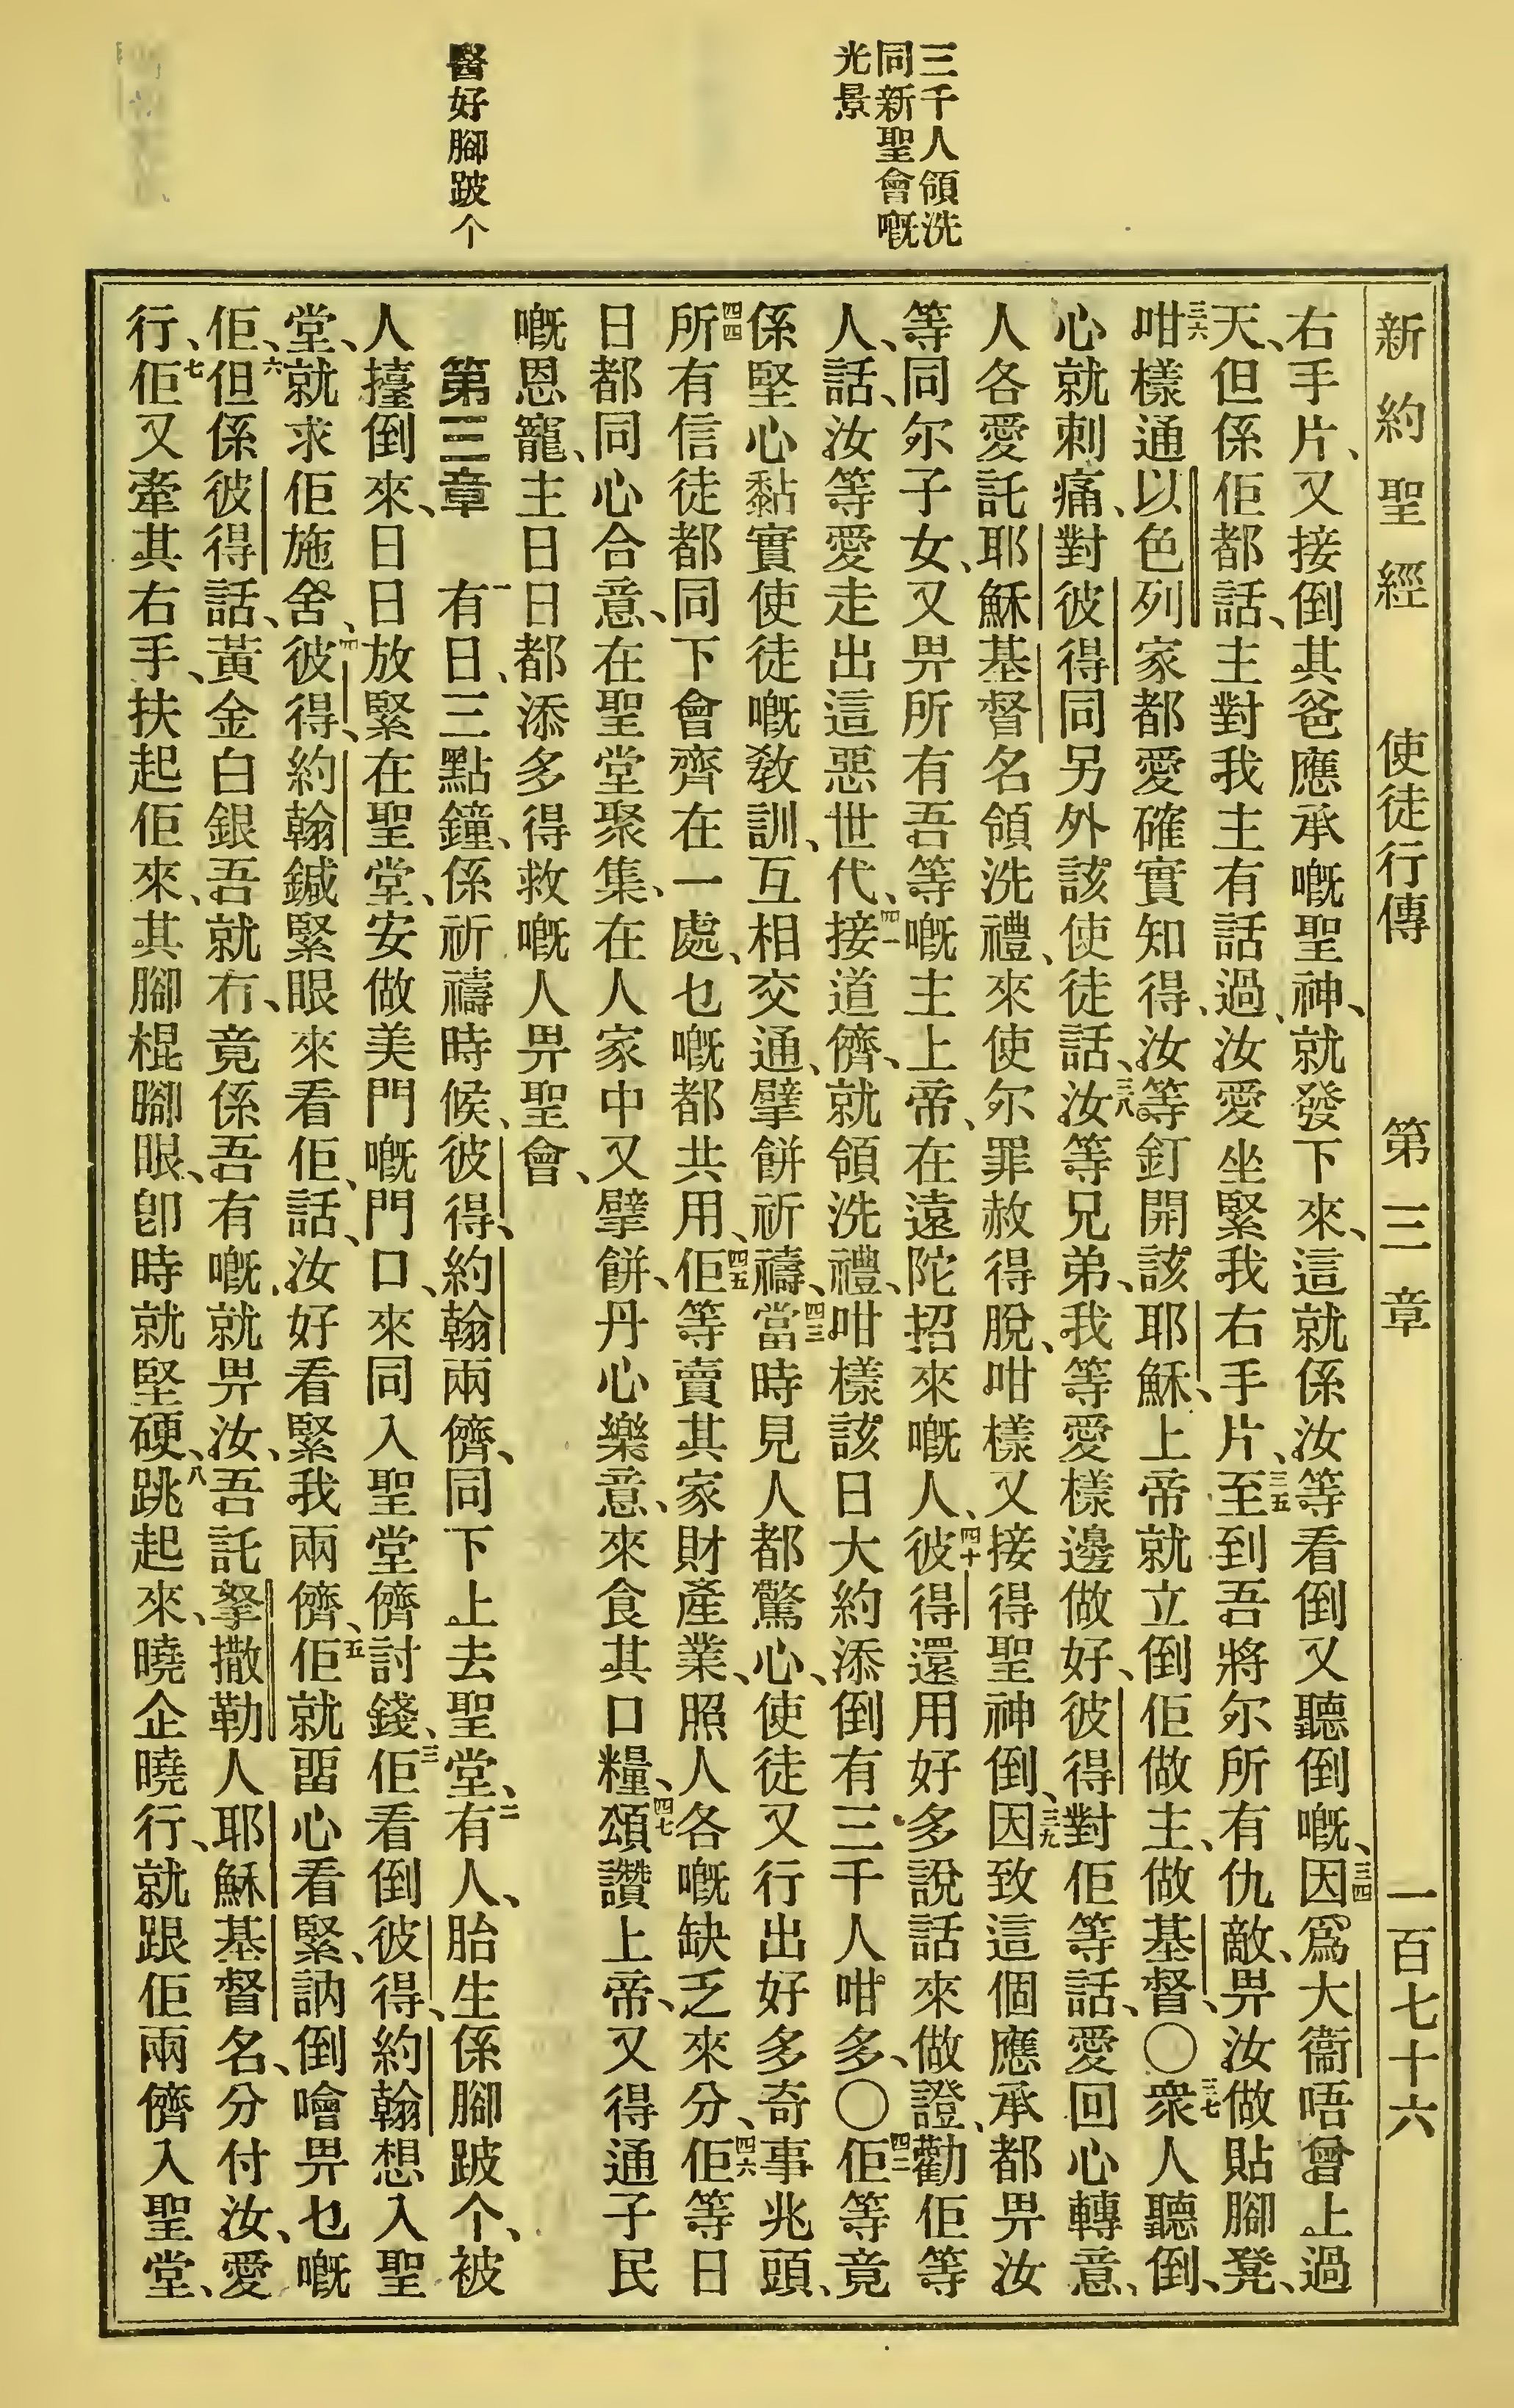 三千人領洗
同新聖會嘅
光景
醫好腳跛个
新約聖經 使徒行傳 第三章 一百七十六
右手片、又接倒其爸應承嘅聖神、就發下來、這就係汝等看倒又聽倒嘅、三四因爲大衞唔曾上過
天、但係佢都話、主對我主有話過、汝愛坐緊我右手片、三五至到吾將尔所有仇敵、畀汝做貼腳凳、
三六咁樣通以色列家都愛確實知得、汝等釘開該耶穌、上帝就立倒佢做主、做基督、〇三七衆人聽倒、
心就刺痛、對彼得同另外該使徒話、三八汝等兄弟、我等愛樣邊做好、彼得對佢等話、愛回心轉意、
人各愛託耶穌基督名領洗禮、來使尔罪赦得脫、咁樣又接得聖神倒、三九因致這個應承都畀汝
等同尔子女、又畀所有吾等嘅主上帝、在遠陀招來嘅人、四十彼得還用好多說話來做證、勸佢等
人、話、汝等愛走出這惡世代、四一接道儕、就領洗禮、咁樣該日大約添倒有三千人咁多、〇四二佢等竟
係堅心黏實使徒嘅教訓、互相交通、擘餅祈禱、四三當時見人都驚心、使徒又行出好多奇事兆頭、
四四所有信徒都同下會齊在一處、乜嘅都共用、四五佢等賣其家財產業、照人各嘅缺乏來分、四六佢等日
日都同心合意、在聖堂聚集、在人家中又擘餅、丹心樂意、來食其口糧、四七頌讚上帝、又得通子民
嘅恩寵、主日日都添多得救嘅人畀聖會、
第三章 一有日、三點鐘、係祈禱時候、彼得、約翰兩儕、同下上去聖堂、二有人、胎生係腳跛个、被
人擡倒來、日日放緊在聖堂、安做美門嘅門口、來同入聖堂儕討錢、三佢看倒彼得、約翰想入聖
堂、就求佢施舍、四彼得、約翰鍼緊眼來看佢、話、汝好看緊我兩儕、五佢就畱心看緊、訥倒噲畀乜嘅
佢、六但係彼得話、黃金白銀吾就冇、竟係吾有嘅、就畀汝、吾託拏撒勒人耶穌基督名、分付汝、愛
行、七佢又牽其右手、扶起佢來、其腳棍腳眼、卽時就堅硬、八跳起來、曉企曉行、就跟佢兩儕入聖堂、